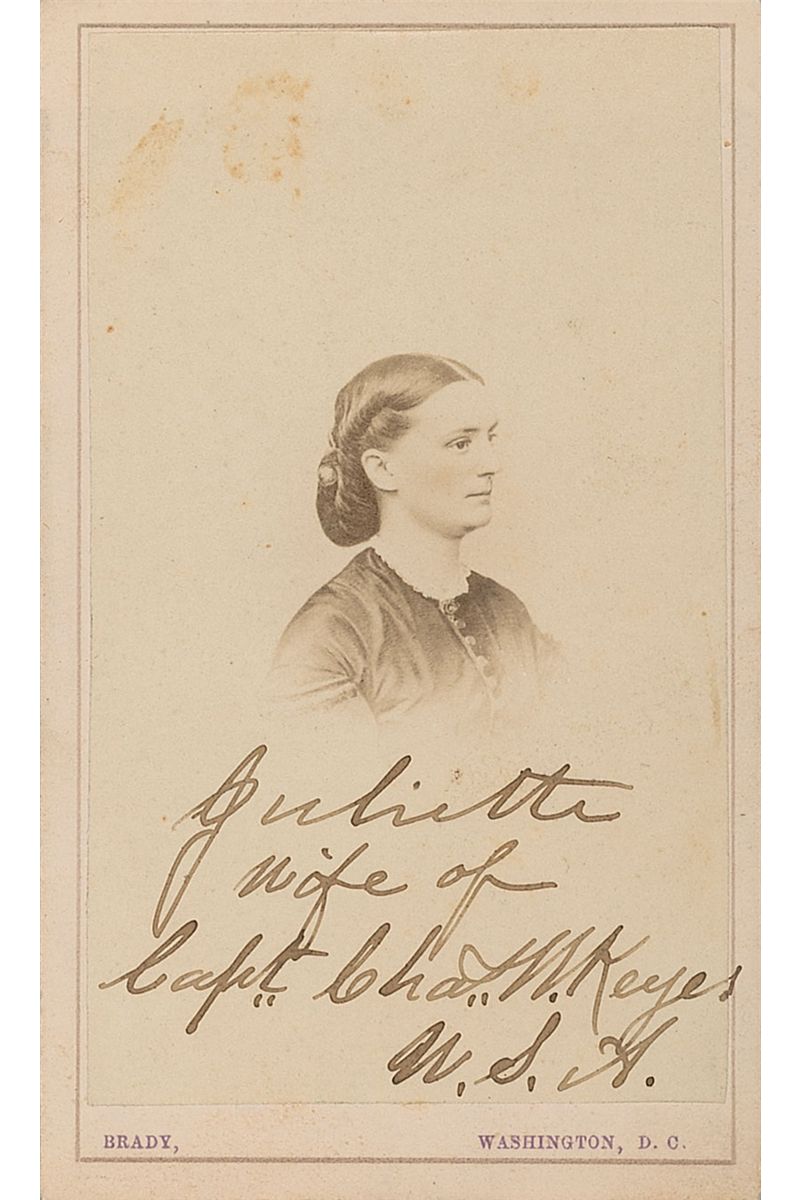 Juliette
wife of
Capt. Chas. W. Keyes
U. S. A.
BRADY, WASHINGTON, D. C.